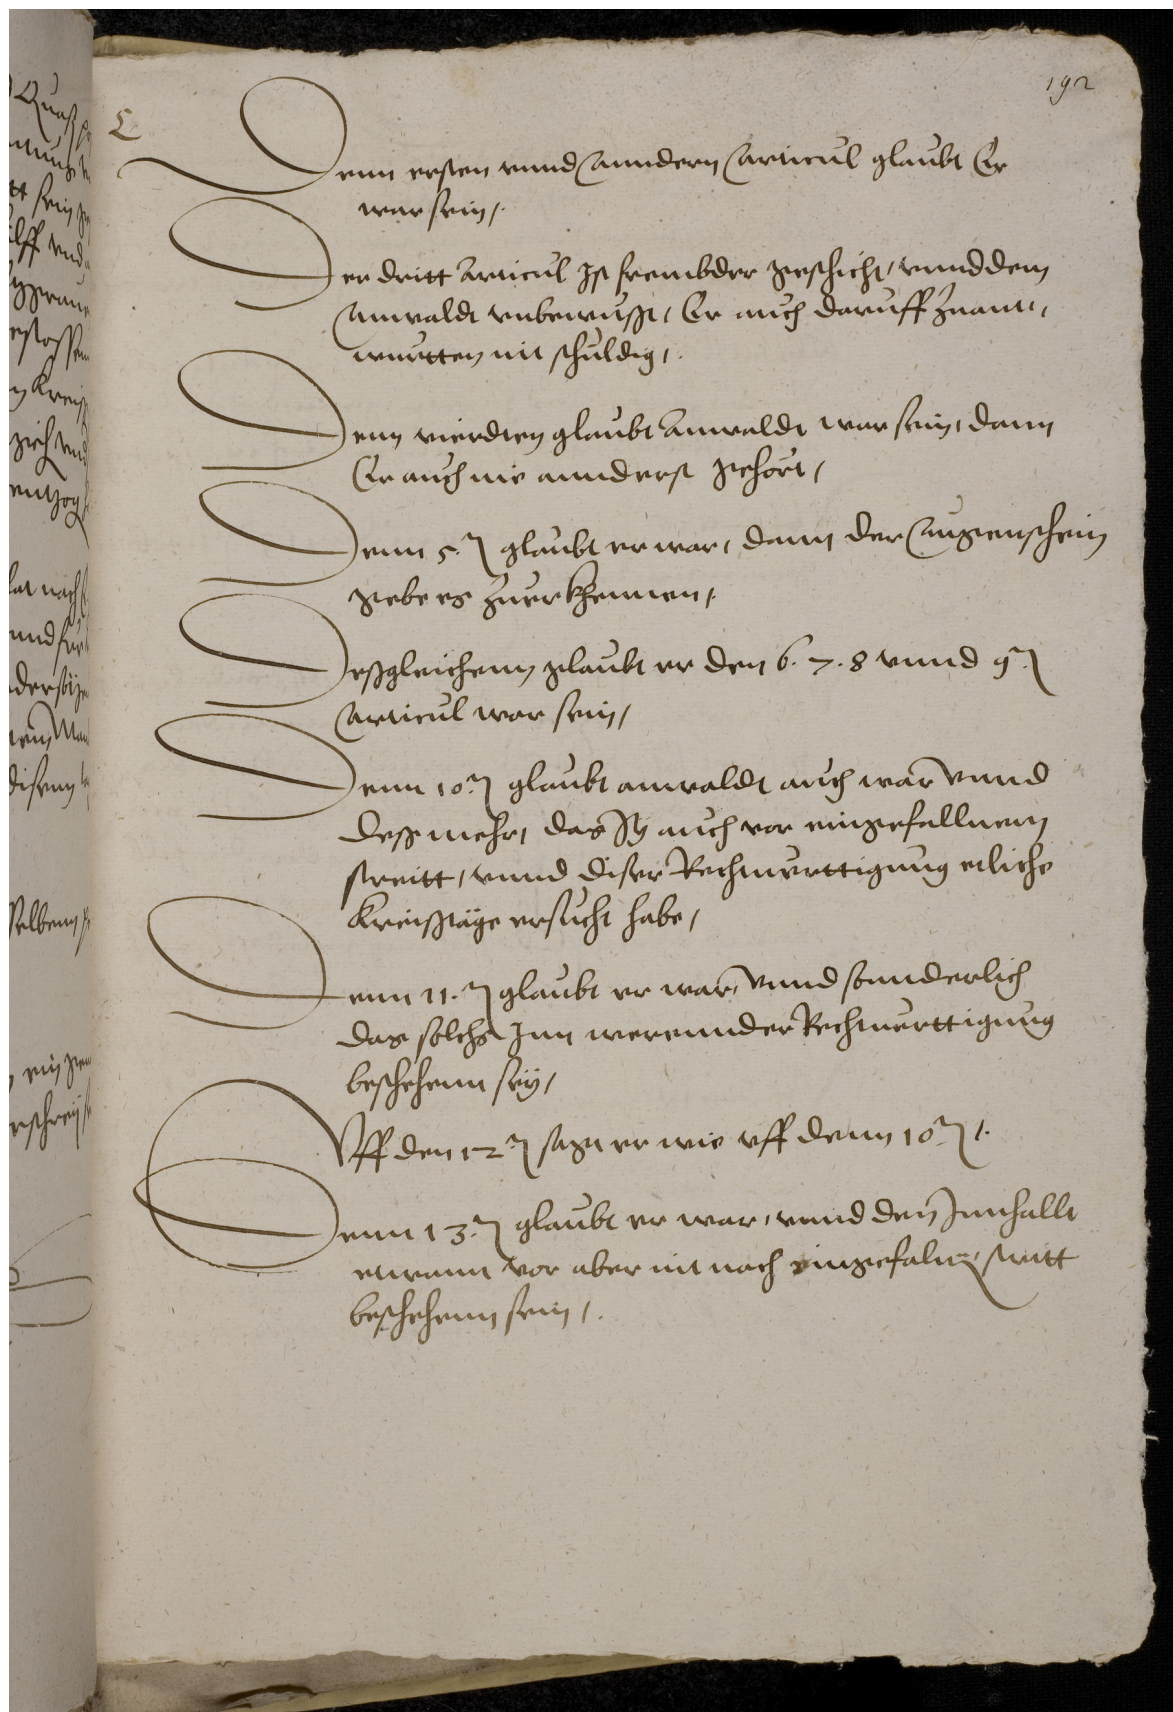 192
Denn ersten vnnd Anndern Articul glaubt Er
war sein /.
Der dritt Articul Ist frembder geschicht, vnnd dem
Anwaldt vnbewusst, Er auch daruff zuant,,
wurtten nit schuldig /.
Denn vierdten glaubt Anwaldt war sein, dann
Er auch nie annderst gehört /
Denn 5.ⁿ glaubt er war, dann der Augenschein
gebe es zuerkhennen /.
Deßgleichenn glaubt er den 6. 7. 8 vnnd 9.ⁿ
Articul war sein /
Denn 10.ⁿ glaubt anwaldt auch war vnnd
deß mehr, das Ir auch vor eingefallnem
streitt, vnnd diser Rechtuerttigung etliche
Kreißtäge ersucht habe /
Denn 11.ⁿ glaubt er war, vnnd sonnderlich
das solchs Inn werennder Rechtuerttigung
beschehenn sey /
Vff den 12.ⁿ sagt er wie vff denn 10.ⁿ /.
Denn 13.ⁿ glaubt er war, vnnd den Innhallt
etwann vor aber nit nach eingefaln streitt
beschehenn sein /.